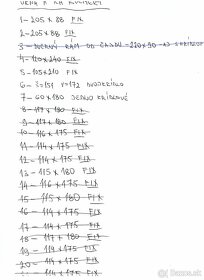 OKNÁ A ICH ROZMERY
1 - 205 x 88 FIX
2 - 205 x 88 FIX
3 - DVERNÝ RÁM OD ČASOU - 220 x 90
4 - 120 x 240 FIX
5 - 105 x 210 FIX
6 - š=151 v=172 DVOJKRÍDLO
7 - 60 x 180 JEDNO KRÍDLOVÉ
8 - 117 x 180 FIX
9 - 117 x 180 FIX
10 - 116 x 175 FIX
11 - 114 x 175 FIX
12 - 114 x 175 FIX
13 - 115 x 180 FIX
14 - 116 x 175 FIX
15 - 115 x 180 FIX
16 - 114 x 175 FIX
17 - 114 x 175 FIX
18 - 117 x 180 FIX
19 - 114 x 175 FIX
20 - 114 x 175 FIX
bazos.sk